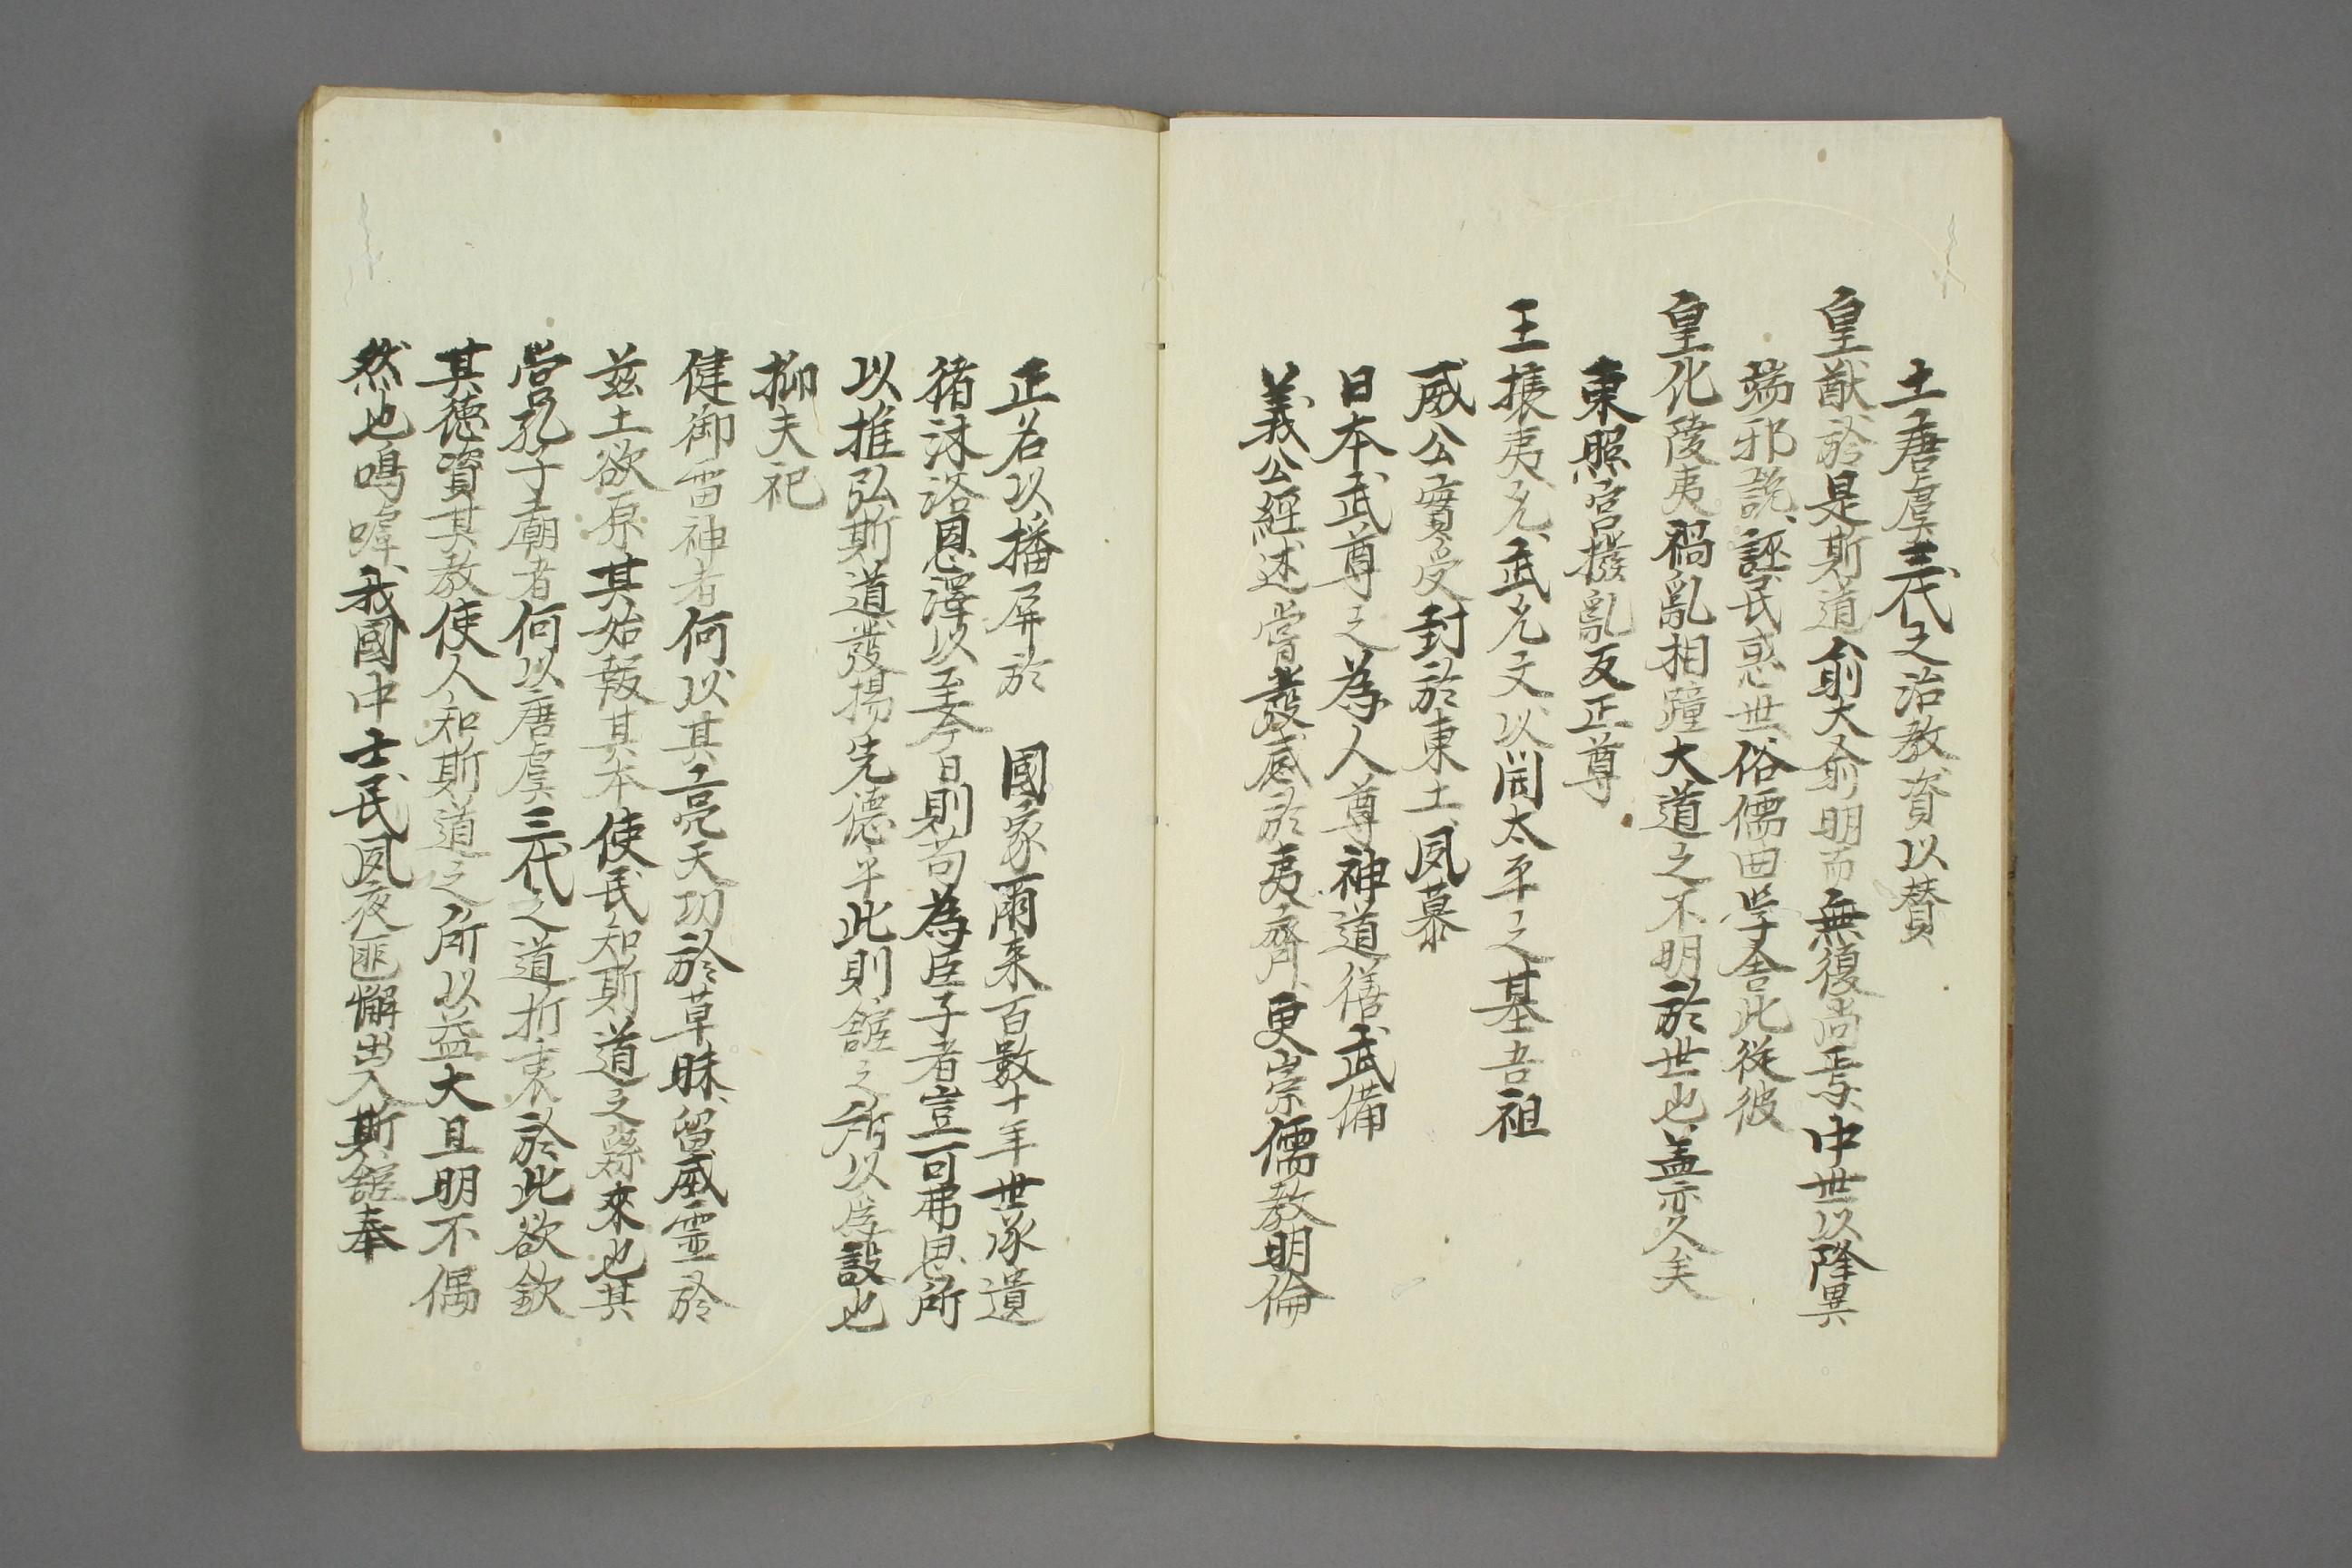 土唐虞三代之治教資以賛
皇猷於是斯道俞大俞明而無復尚焉中世以降異
端邪説誣民惑世俗儒曲学舎此従彼
皇化陵夷禍亂相踵大道之不明於世也盖亦久矣
東照宮撥亂反正尊
王攘夷允武允文以開太平之基吾祖
威公實受封於東土夙慕
日本武尊之為人尊神道繕武備
義公經述嘗發感於夷齊更崇儒教明倫
正名以播屏於　國家爾来百數十年世承遺
緒沐浴恩澤以至今日則苟為臣子者豈可弗思所
以推弘斯道發揚先德乎此則舘之所以為設也
抑夫祀
健御雷神者何以其亮天功於草昧留威霊於
茲土欲原其始報其本使民知斯道之繇來也其
営孔子廟者何以唐虞三代之道折衷於此欲欽
其徳資其教使人知斯道之所以益大且明不偶
然也嗚嘑我國中士民夙夜匪懈出入斯舘奉